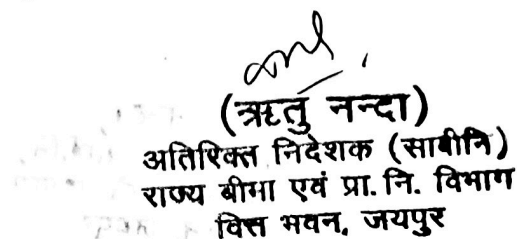 (ऋतु नन्दा)
अतिरिक्त निदेशक (साबीनि)
राज्य बीमा एवं प्रा. नि. विभाग
वित्त भवन, जयपुर